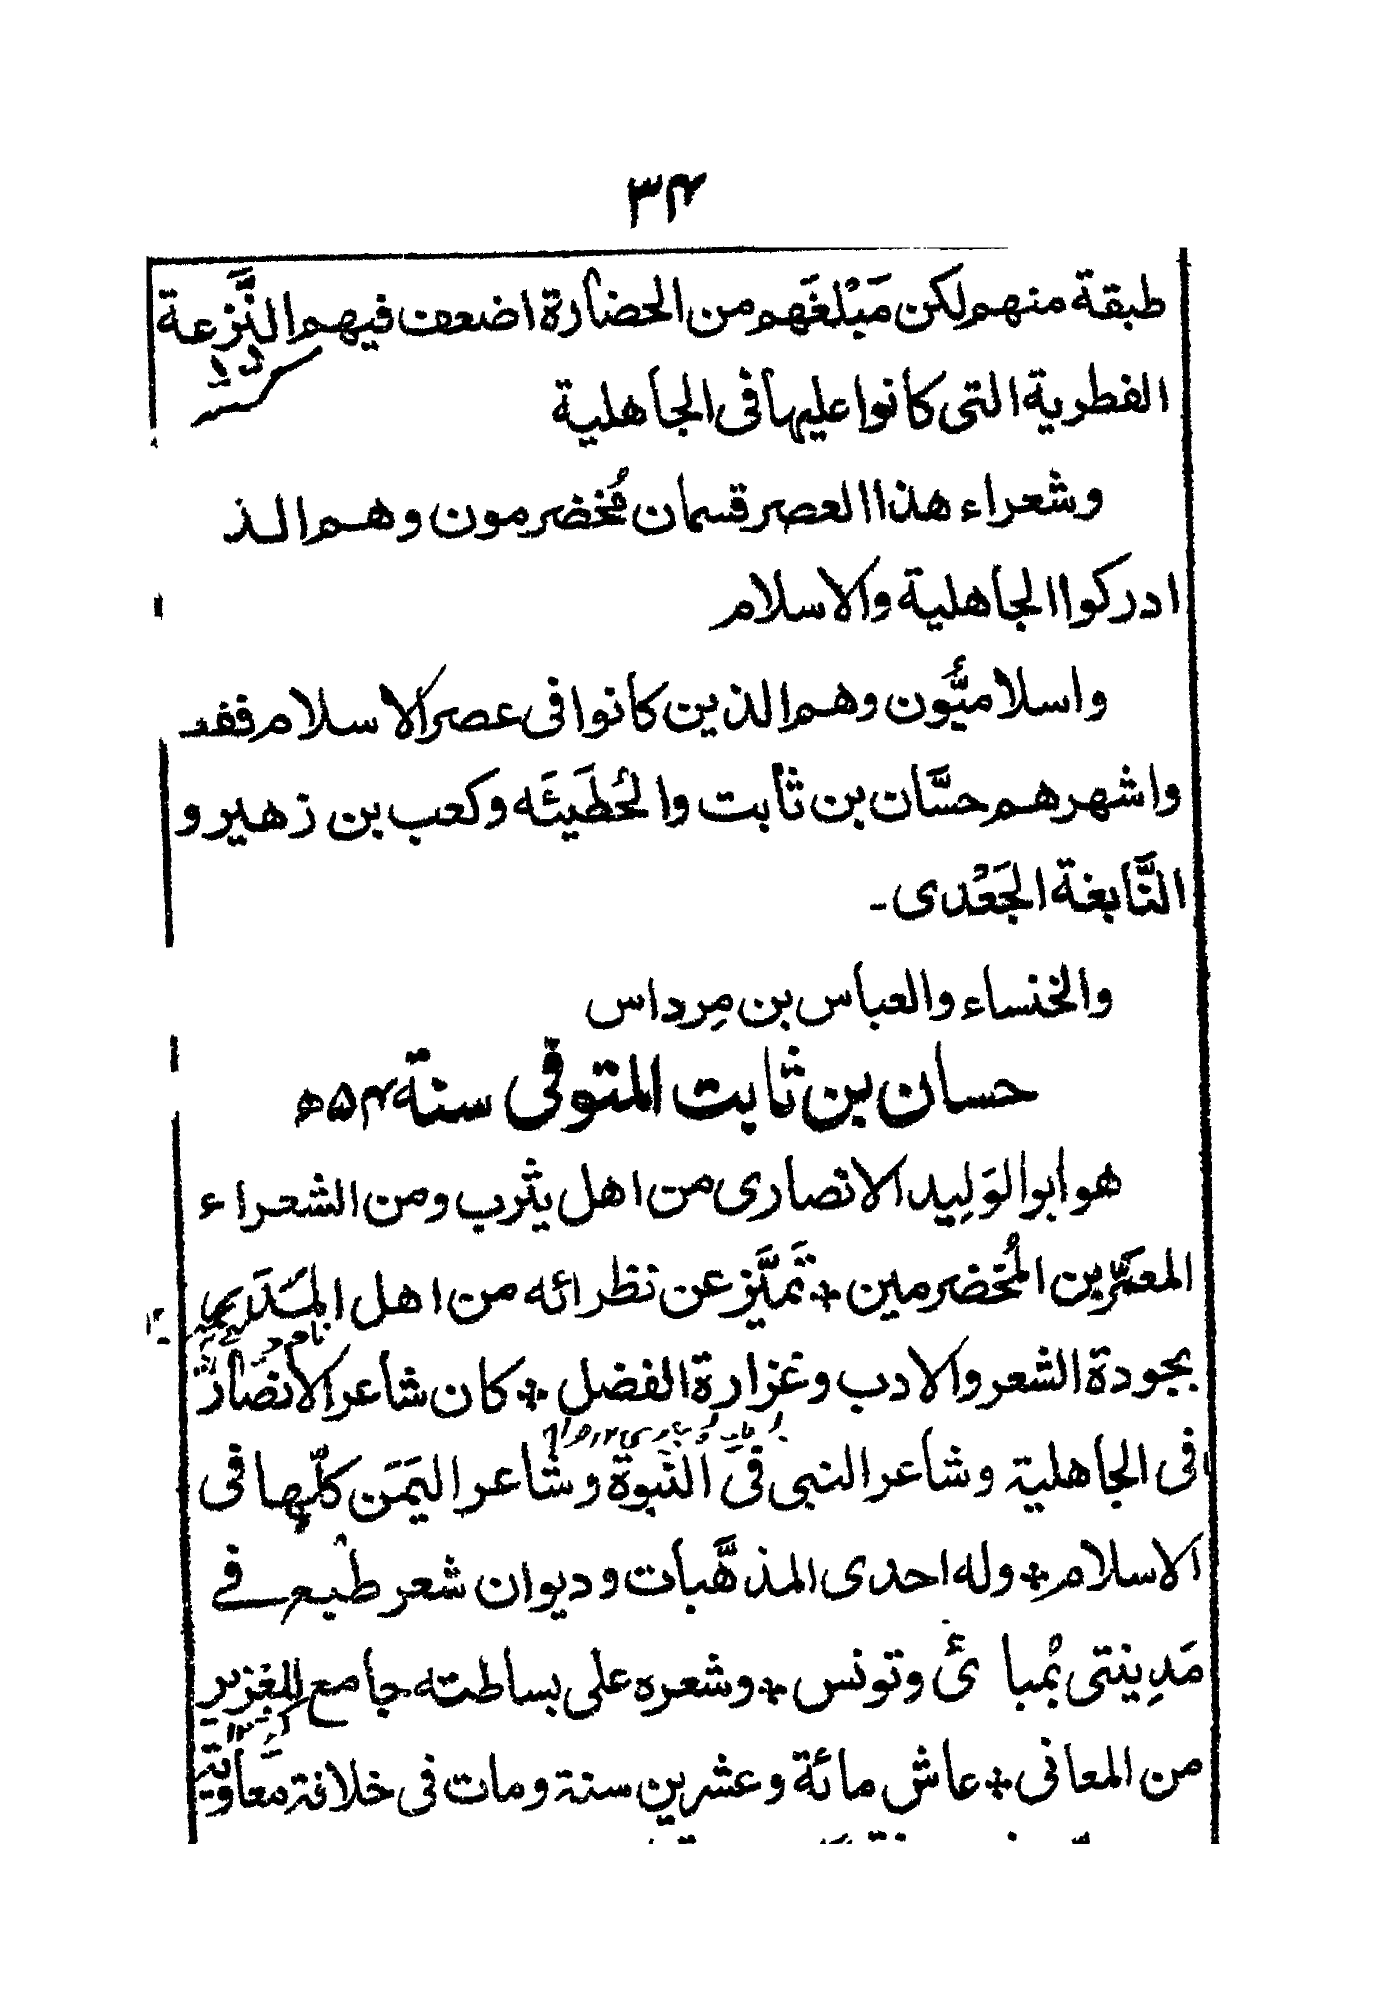 ۳۴
طبقة منهم لكن مَبْلغَهم من الحضارة اضعف فيهم النَّزعة
الفطرية التى كانوا عليها فى الجاهلية
وشعراء هذا العصر قسمان مُخضرمون وهم الذ
ادركوا الجاهلية والاسلام
واسلاميُّون وهم الذين كانوا فى عصر الاسلام فقد
واشهرهم حسَّان بن ثابت والحُطَيئَه وكعب بن زهير و
النَّابغة الجَعْدى ـ
والخنساء والعباس بن مِرداس
حسان بن ثابت المتوفى سنة ۵۴ھ
هو ابو الوَلِيد الانصارى من اهل يثرب ومن الشعراء
المعمّرين المُخضرمين ٭ تَميَّز عن نظرائه من اهل المَدَر
بجودة الشعر والادب وغزارة الفضل ٭ كان شاعر الانصار
فى الجاهلية وشاعر النبى فى النبوة وشاعر اليَمَن كلّها فى
الاسلام ٭ وله احدى المذهَّبات وديوان شعر طبع فے
مَدِينتى بُمبائ وتونس ٭ وشعره على بساطته جامع للغزير
من المعانى ٭ عاش مائة وعشرين سنة ومات فى خلافة معاوية